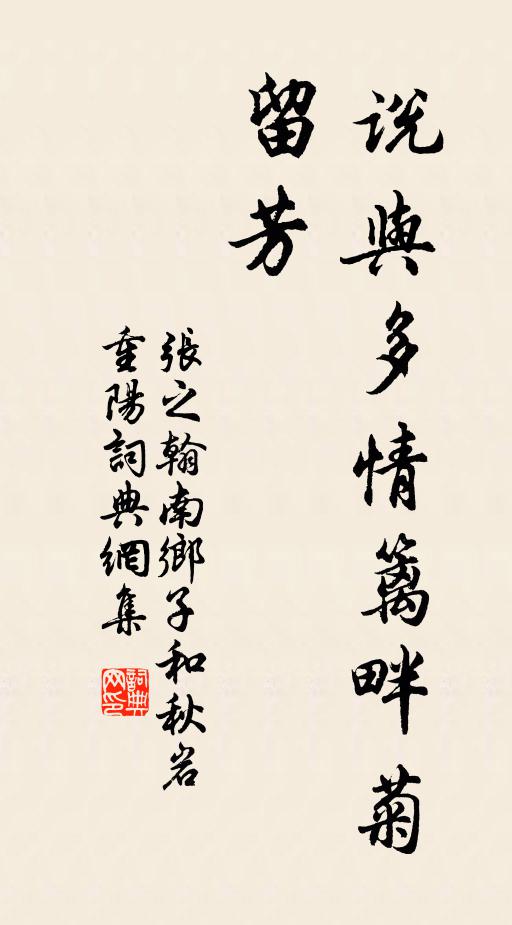 說與多情籬畔菊
留芳
張之翰南鄉子和秋岩
重陽詞典網集
詞典網印